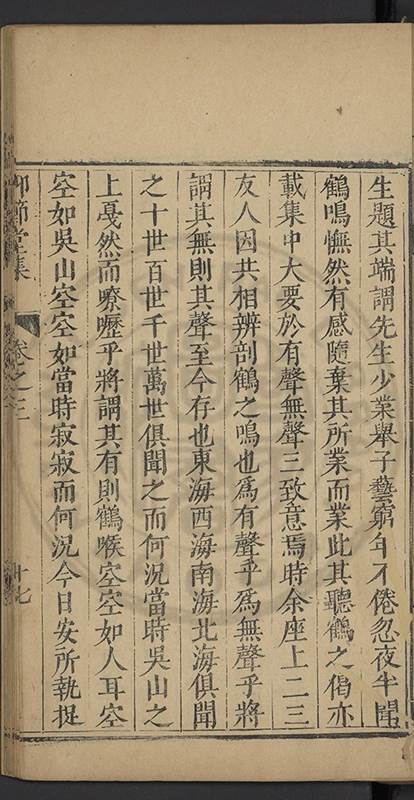 生題其端謂先生少業舉子藝窮年不倦忽夜半聞
鶴鳴憮然有感隨棄其所業而業此其聽鶴之偈亦
載集中大要於有聲無聲三致意焉時余座上二三
友人因共相辨剖鶴之鳴也爲有聲乎爲無聲乎將
謂其無則其聲至今存也東海西海南海北海俱聞
之十世百世千世萬世俱聞之而何況當時吳山之
上戞然而嘹嚦乎將謂其有則鶴喉空空如人耳空
空如吳山空空如當時寂寂而何況今日安所執捉
仰節堂集
卷之三
十七